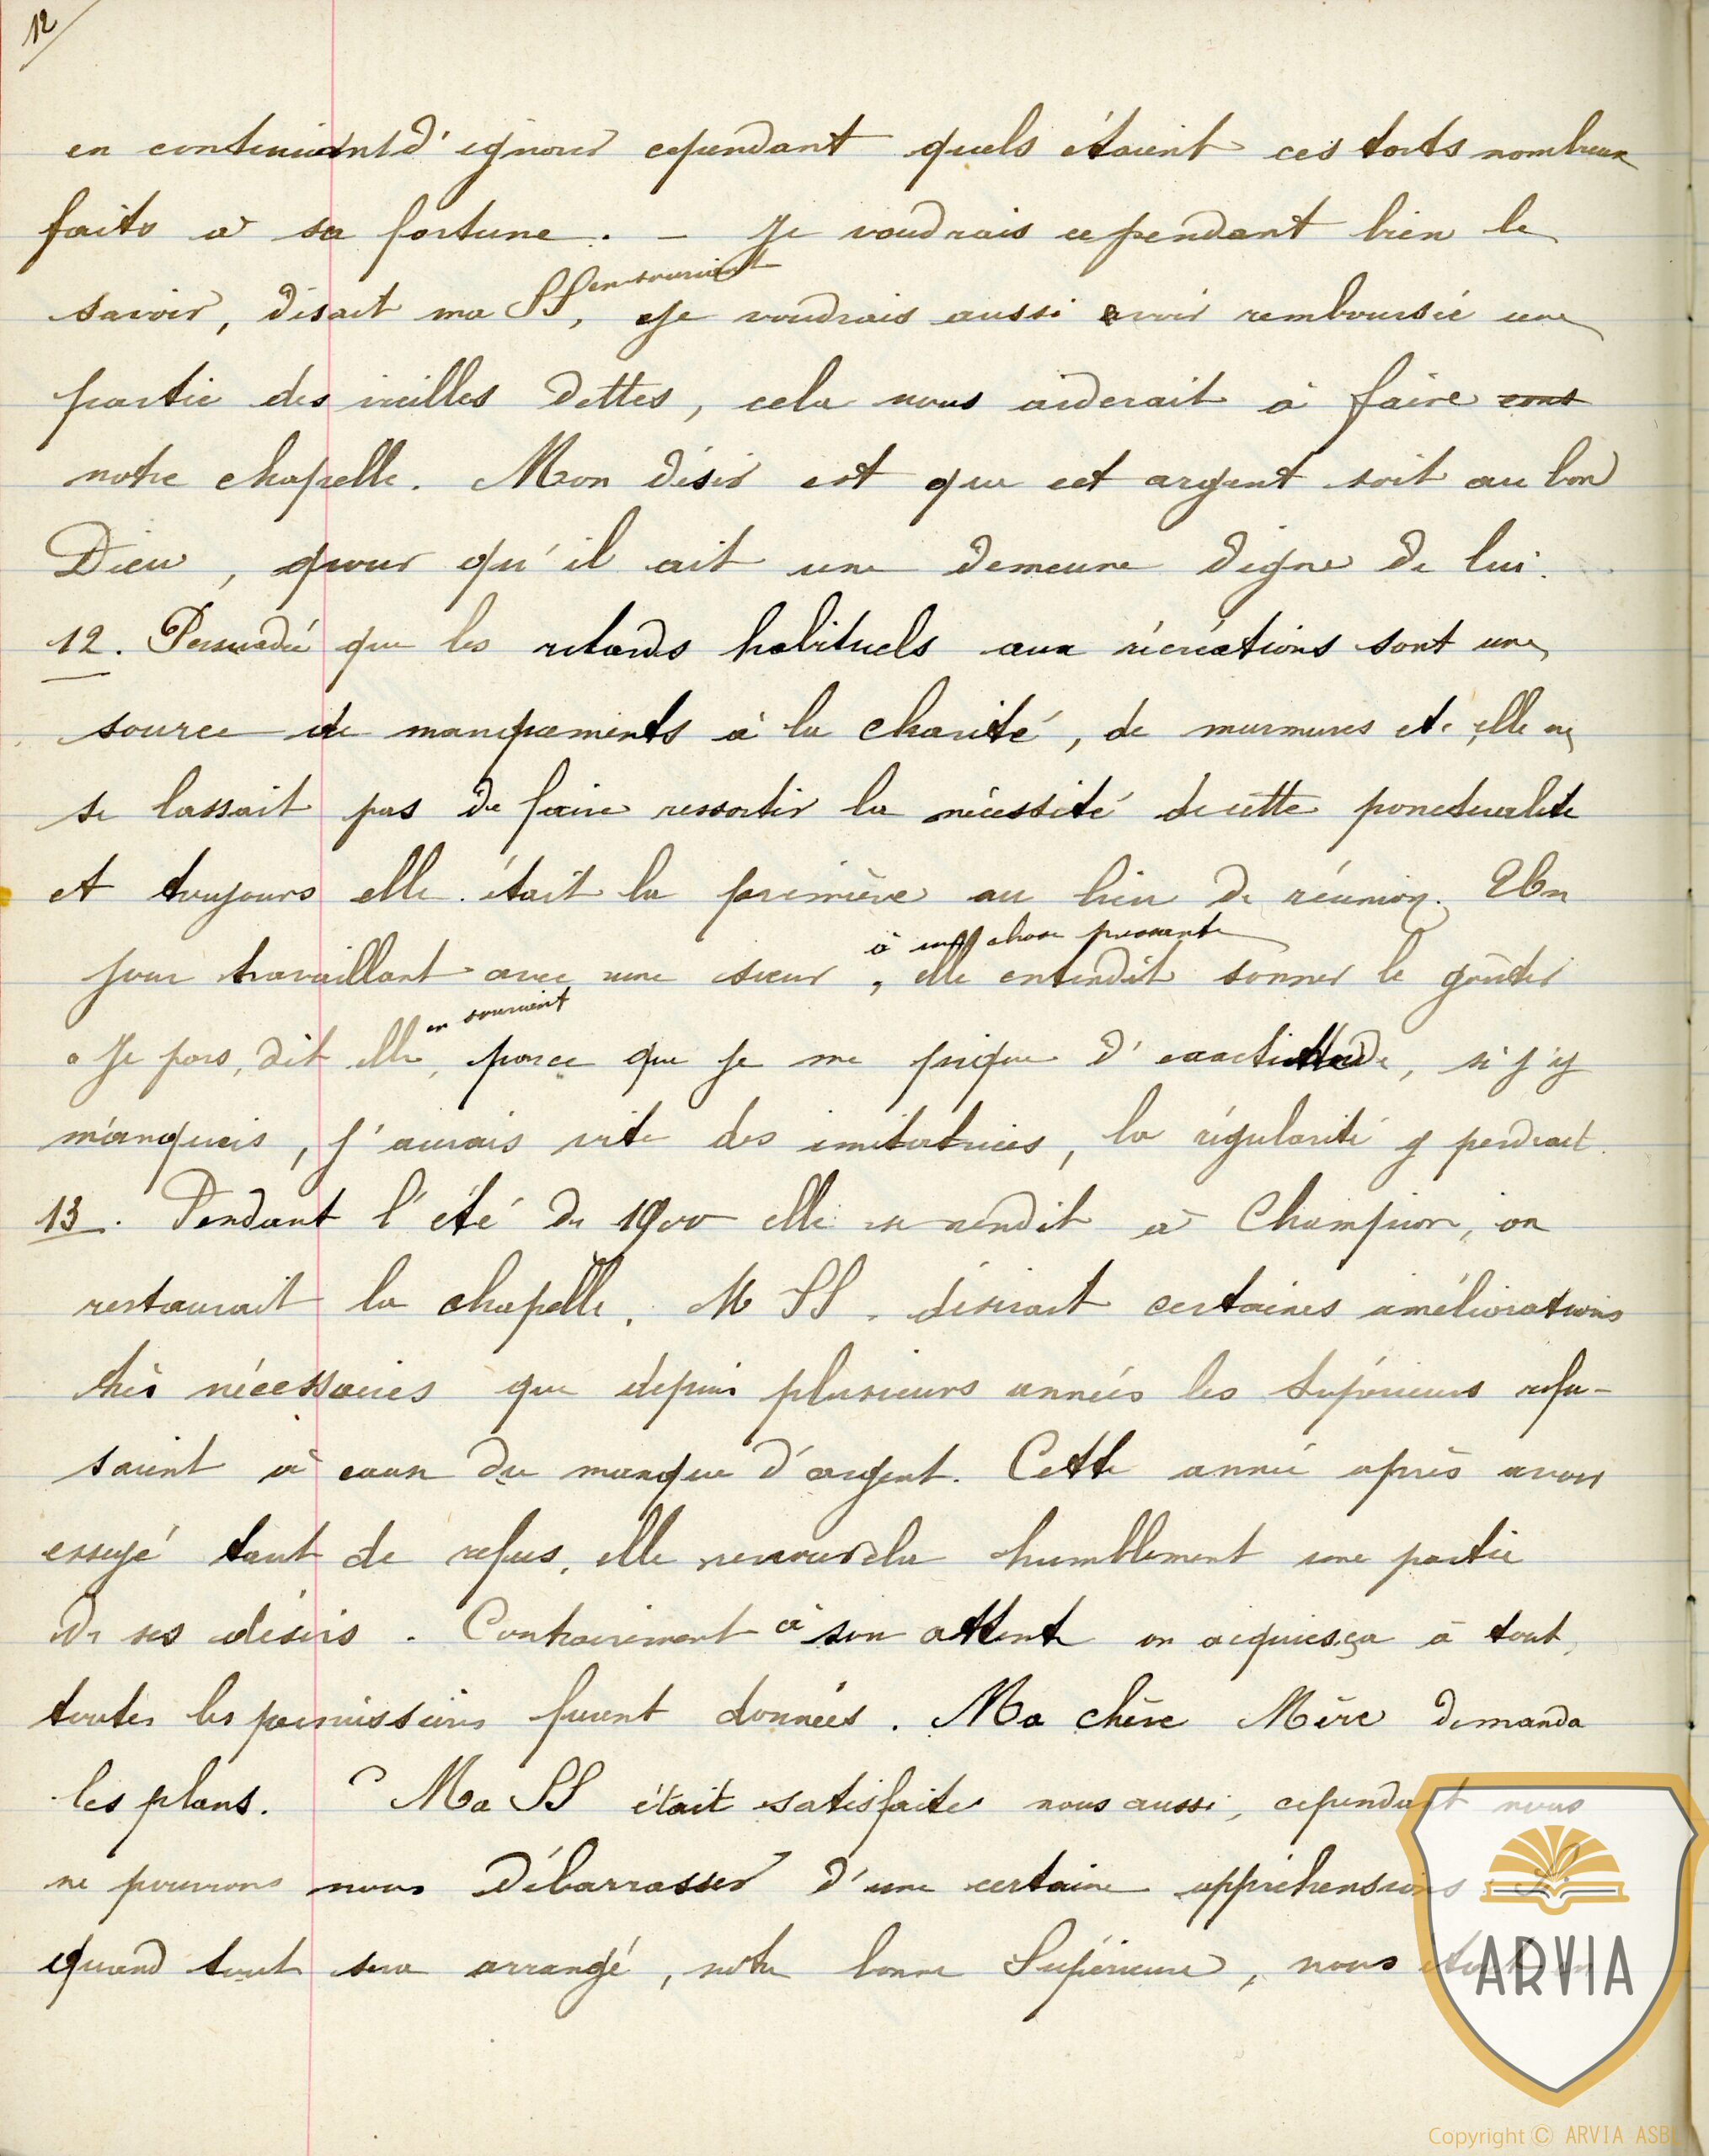 12
en continuant d'ignorer cependant quels étaient ces torts nombreux
faits à sa fortune. — Je voudrais cependant bien le
en souriant
savoir, disait ma SS, Je voudrais aussi avoir remboursée une
partie des vieilles dettes, cela nous aiderait à faire
notre chapelle. Mon désir est que cet argent soit au bon
Dieu, pour qu'il ait une demeure digne de lui.
12. Persuadée que les retards habituels aux récréations sont une
source de manquements à la charité, de murmures etc elle ne
se lassait pas de faire ressortir la nécessité de cette ponctualité
et toujours elle était la première au lieu de réunion. Un
à chose pressante
jour travaillant avec une sœur, elle entendit sonner le goûter
en souriant
Je pars, dit elle, parce que je me pique d'exactitude, si j'y
manquais, j'aurais vite des imitatrices, la régularité y perdrait.
13. Pendant l'été de 1900 elle se rendit à Champion, on
restaurait la chapelle. M SS. désirait certaines améliorations
très nécessaires que depuis plusieurs années les Supérieurs refu-
saient à cause du manque d'argent. Cette année après avoir
essuyé tant de refus, elle renouvela humblement une partie
de ses désirs. Contrairement à son attente on acquiesça à tout,
toutes les permissions furent données. Ma chère Mère demanda
les plans. Ma SS était satisfaite nous aussi, cependant nous
ne pouvions nous débarrasser d'une certaine appréhension
quand tout sera arrangé, notre bonne Supérieure, nous
ARVIA
Copyright © ARVIA ASBL